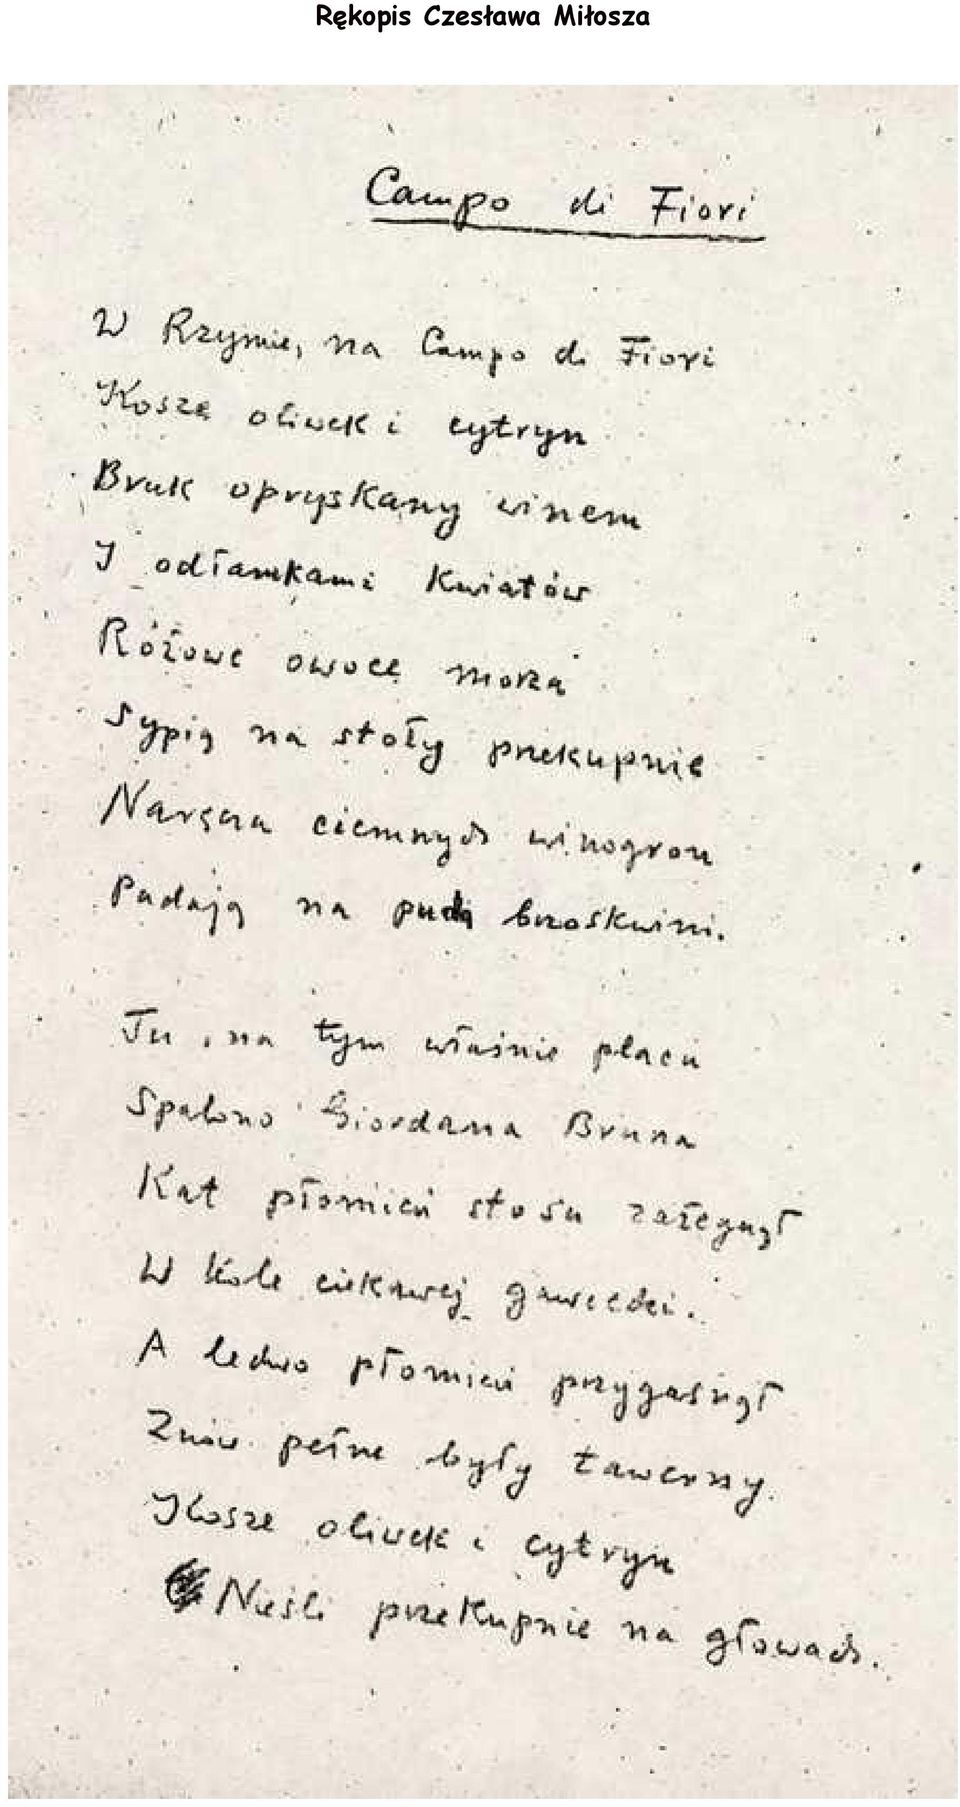 Rękopis Czesława Miłosza
Campo di Fiori
W Rzymie, na Campo di Fiori
Kosze oliwek i cytryn
Bruk opryskany winem
I odłamkami kwiatów
Różowe owoce morza
Sypią na stoły przekupnie
Naręcza ciemnych winogron
Padają na puch brzoskwini.
Tu, na tym właśnie placu
Spalono Giordana Bruna
Kat płomień stosu zażegnął
W kole ciekawej gawiedzi.
A ledwo płomień przygasnął
Znów pełne były tawerny.
Kosze oliwek i cytryn
Nieśli przekupnie na głowach.